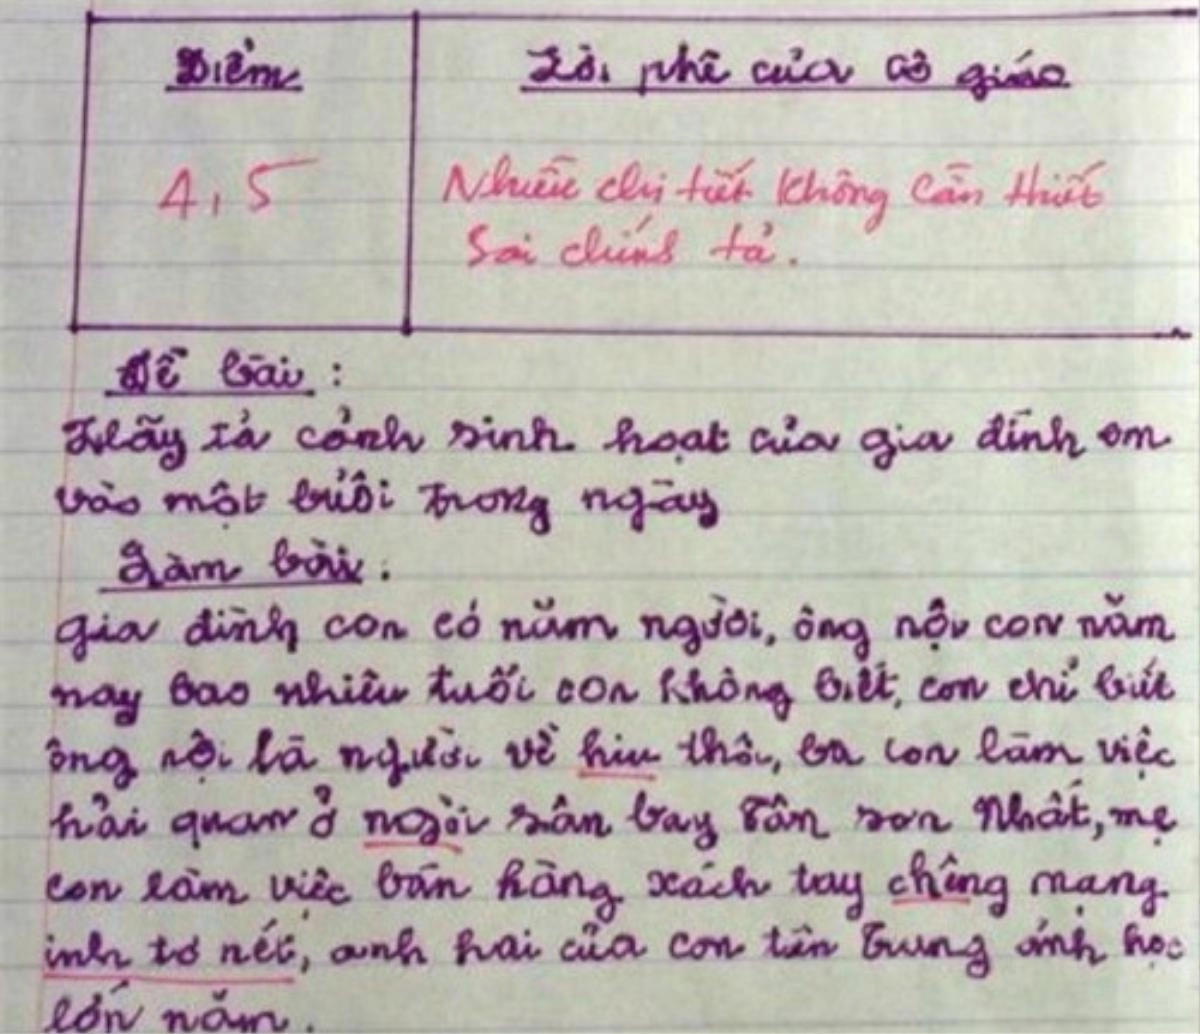 Điểm
Lời phê của cô giáo
4,5
Nhiều chi tiết không cần thiết
Sai chính tả.
Đề bài:
Hãy tả cảnh sinh hoạt của gia đình em
vào một buổi trong ngày
Làm bài:
gia đình con có năm người, ông nội con năm
nay bao nhiêu tuổi con không biết, con chỉ biết
ông nội là người về hiu thôi, ba con làm việc
hải quan ở ngòi sân bay Tân sơn Nhất, mẹ
con làm việc bán hàng xách tay chêng mạng
inh tơ nét, anh hai của con tên Trung ảnh học
lớn năm.